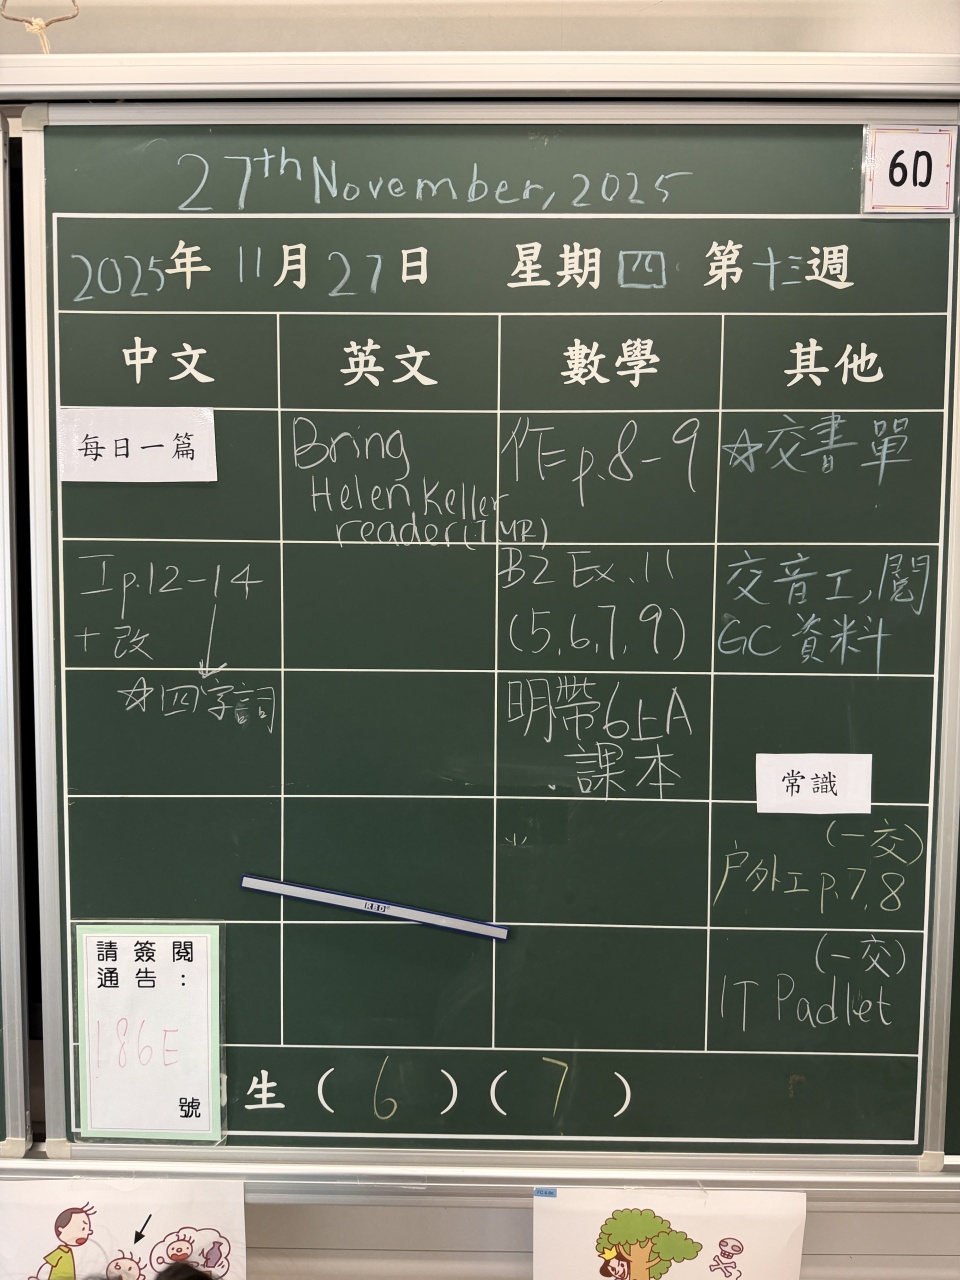 27th November, 2025
6D
2025年 11月27日 星期四 第十三週
中文
英文
數學
其他
每日一篇
Bring
Helen Keller
reader (TMR)
作 p.8-9
☆交書單
工p.12-14
+改
B2 Ex.11
(5,6,7,9)
交音工,閱
GC 資料
☆四字詞
明帶6上A
課本
常識
(一交)
戶外工p.7,8
(一交)
IT Padlet
請簽閱
通告:
186E
號
生(6)(7)